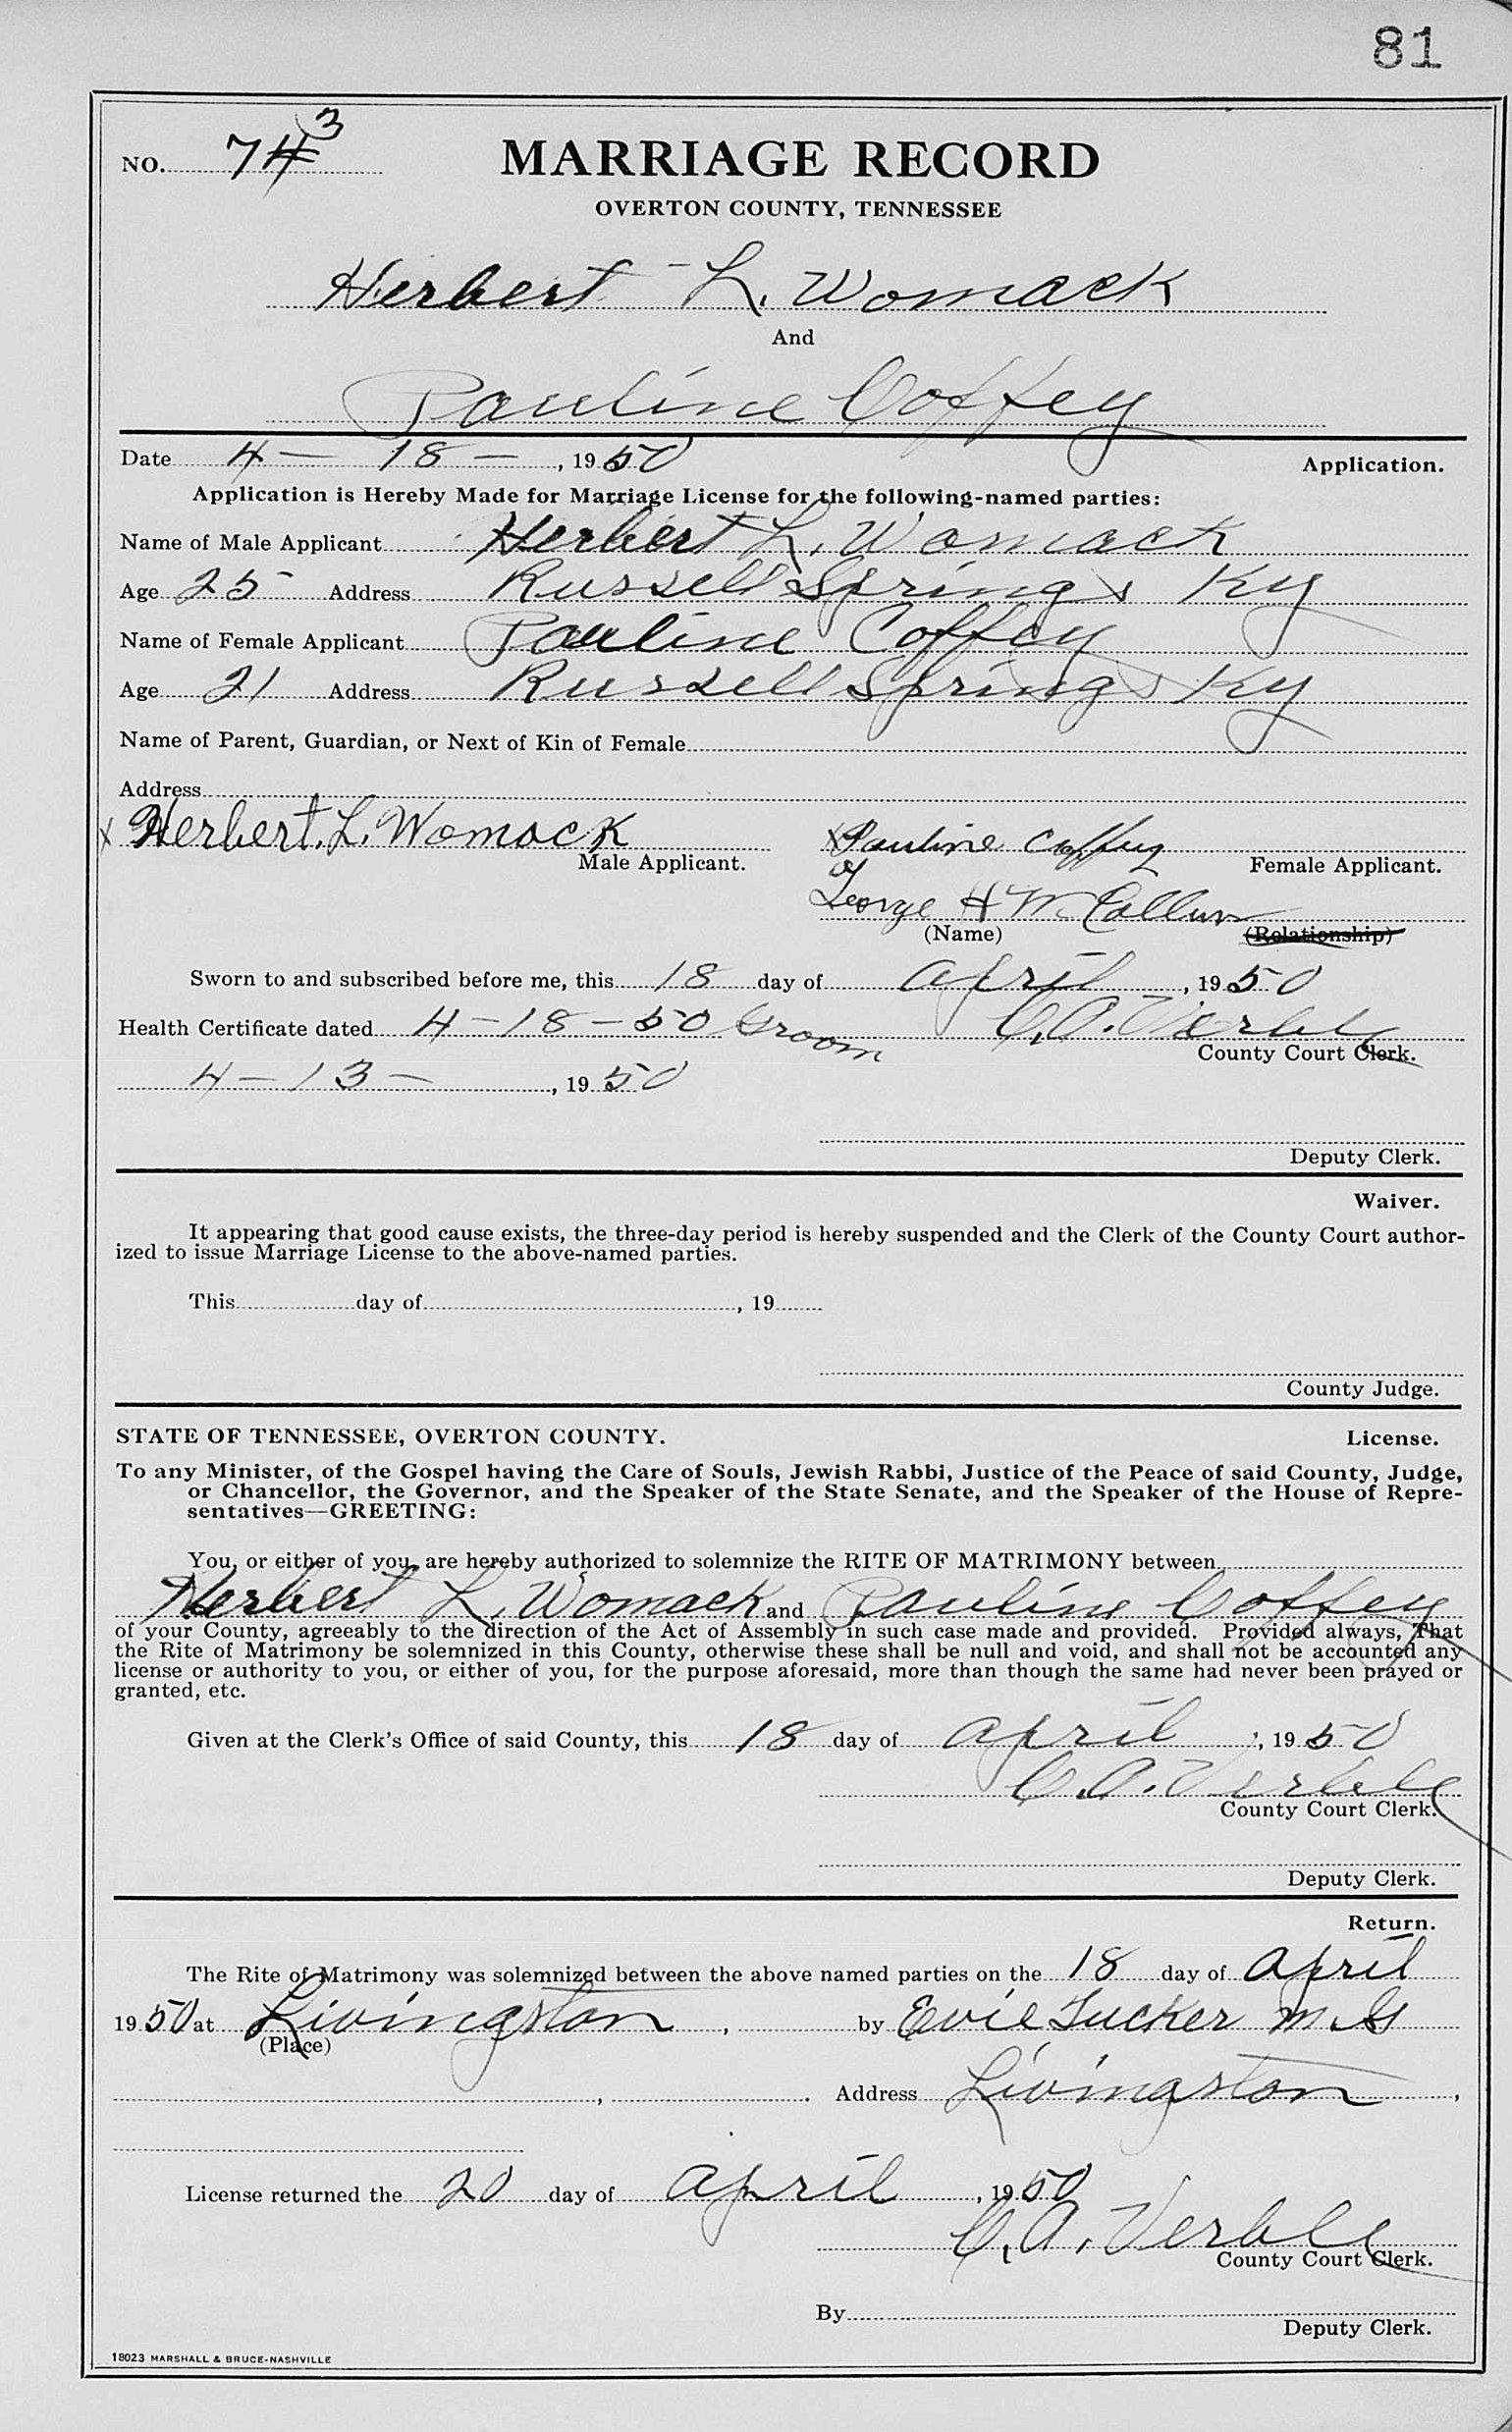 81
NO. 743
MARRIAGE RECORD
OVERTON COUNTY, TENNESSEE
Herbert L. Womack
And
Pauline Coffey
Date 4 - 18 - , 1950 Application.
Application is Hereby Made for Marriage License for the following-named parties:
Name of Male Applicant Herbert L. Womack
Age 25 Address Russell Springs Ky
Name of Female Applicant Pauline Coffey
Age 21 Address Russell Springs Ky
Name of Parent, Guardian, or Next of Kin of Female
Address
x Herbert. L. Womack x Pauline Coffey
Male Applicant. Female Applicant.
George H McCallum
(Name) (Relationship)
Sworn to and subscribed before me, this 18 day of April , 1950
Health Certificate dated 4-18-50 Groom C. A. Verble
County Court Clerk.
4-13- , 1950
Deputy Clerk.
Waiver.
It appearing that good cause exists, the three-day period is hereby suspended and the Clerk of the County Court author-
ized to issue Marriage License to the above-named parties.
This day of , 19
County Judge.
STATE OF TENNESSEE, OVERTON COUNTY. License.
To any Minister, of the Gospel having the Care of Souls, Jewish Rabbi, Justice of the Peace of said County, Judge,
or Chancellor, the Governor, and the Speaker of the State Senate, and the Speaker of the House of Repre-
sentatives—GREETING:
You, or either of you, are hereby authorized to solemnize the RITE OF MATRIMONY between
Herbert L. Womack and Pauline Coffey
of your County, agreeably to the direction of the Act of Assembly in such case made and provided. Provided always, That
the Rite of Matrimony be solemnized in this County, otherwise these shall be null and void, and shall not be accounted any
license or authority to you, or either of you, for the purpose aforesaid, more than though the same had never been prayed or
granted, etc.
Given at the Clerk's Office of said County, this 18 day of April , 1950
C. A. Verble
County Court Clerk.
Deputy Clerk.
Return.
The Rite of Matrimony was solemnized between the above named parties on the 18 day of April
1950 at Livingston , by Evie Tucker M.G
(Place)
, . Address Livingston ,
License returned the 20 day of April , 1950
C. A. Verble
County Court Clerk.
By
Deputy Clerk.
18023 MARSHALL & BRUCE-NASHVILLE